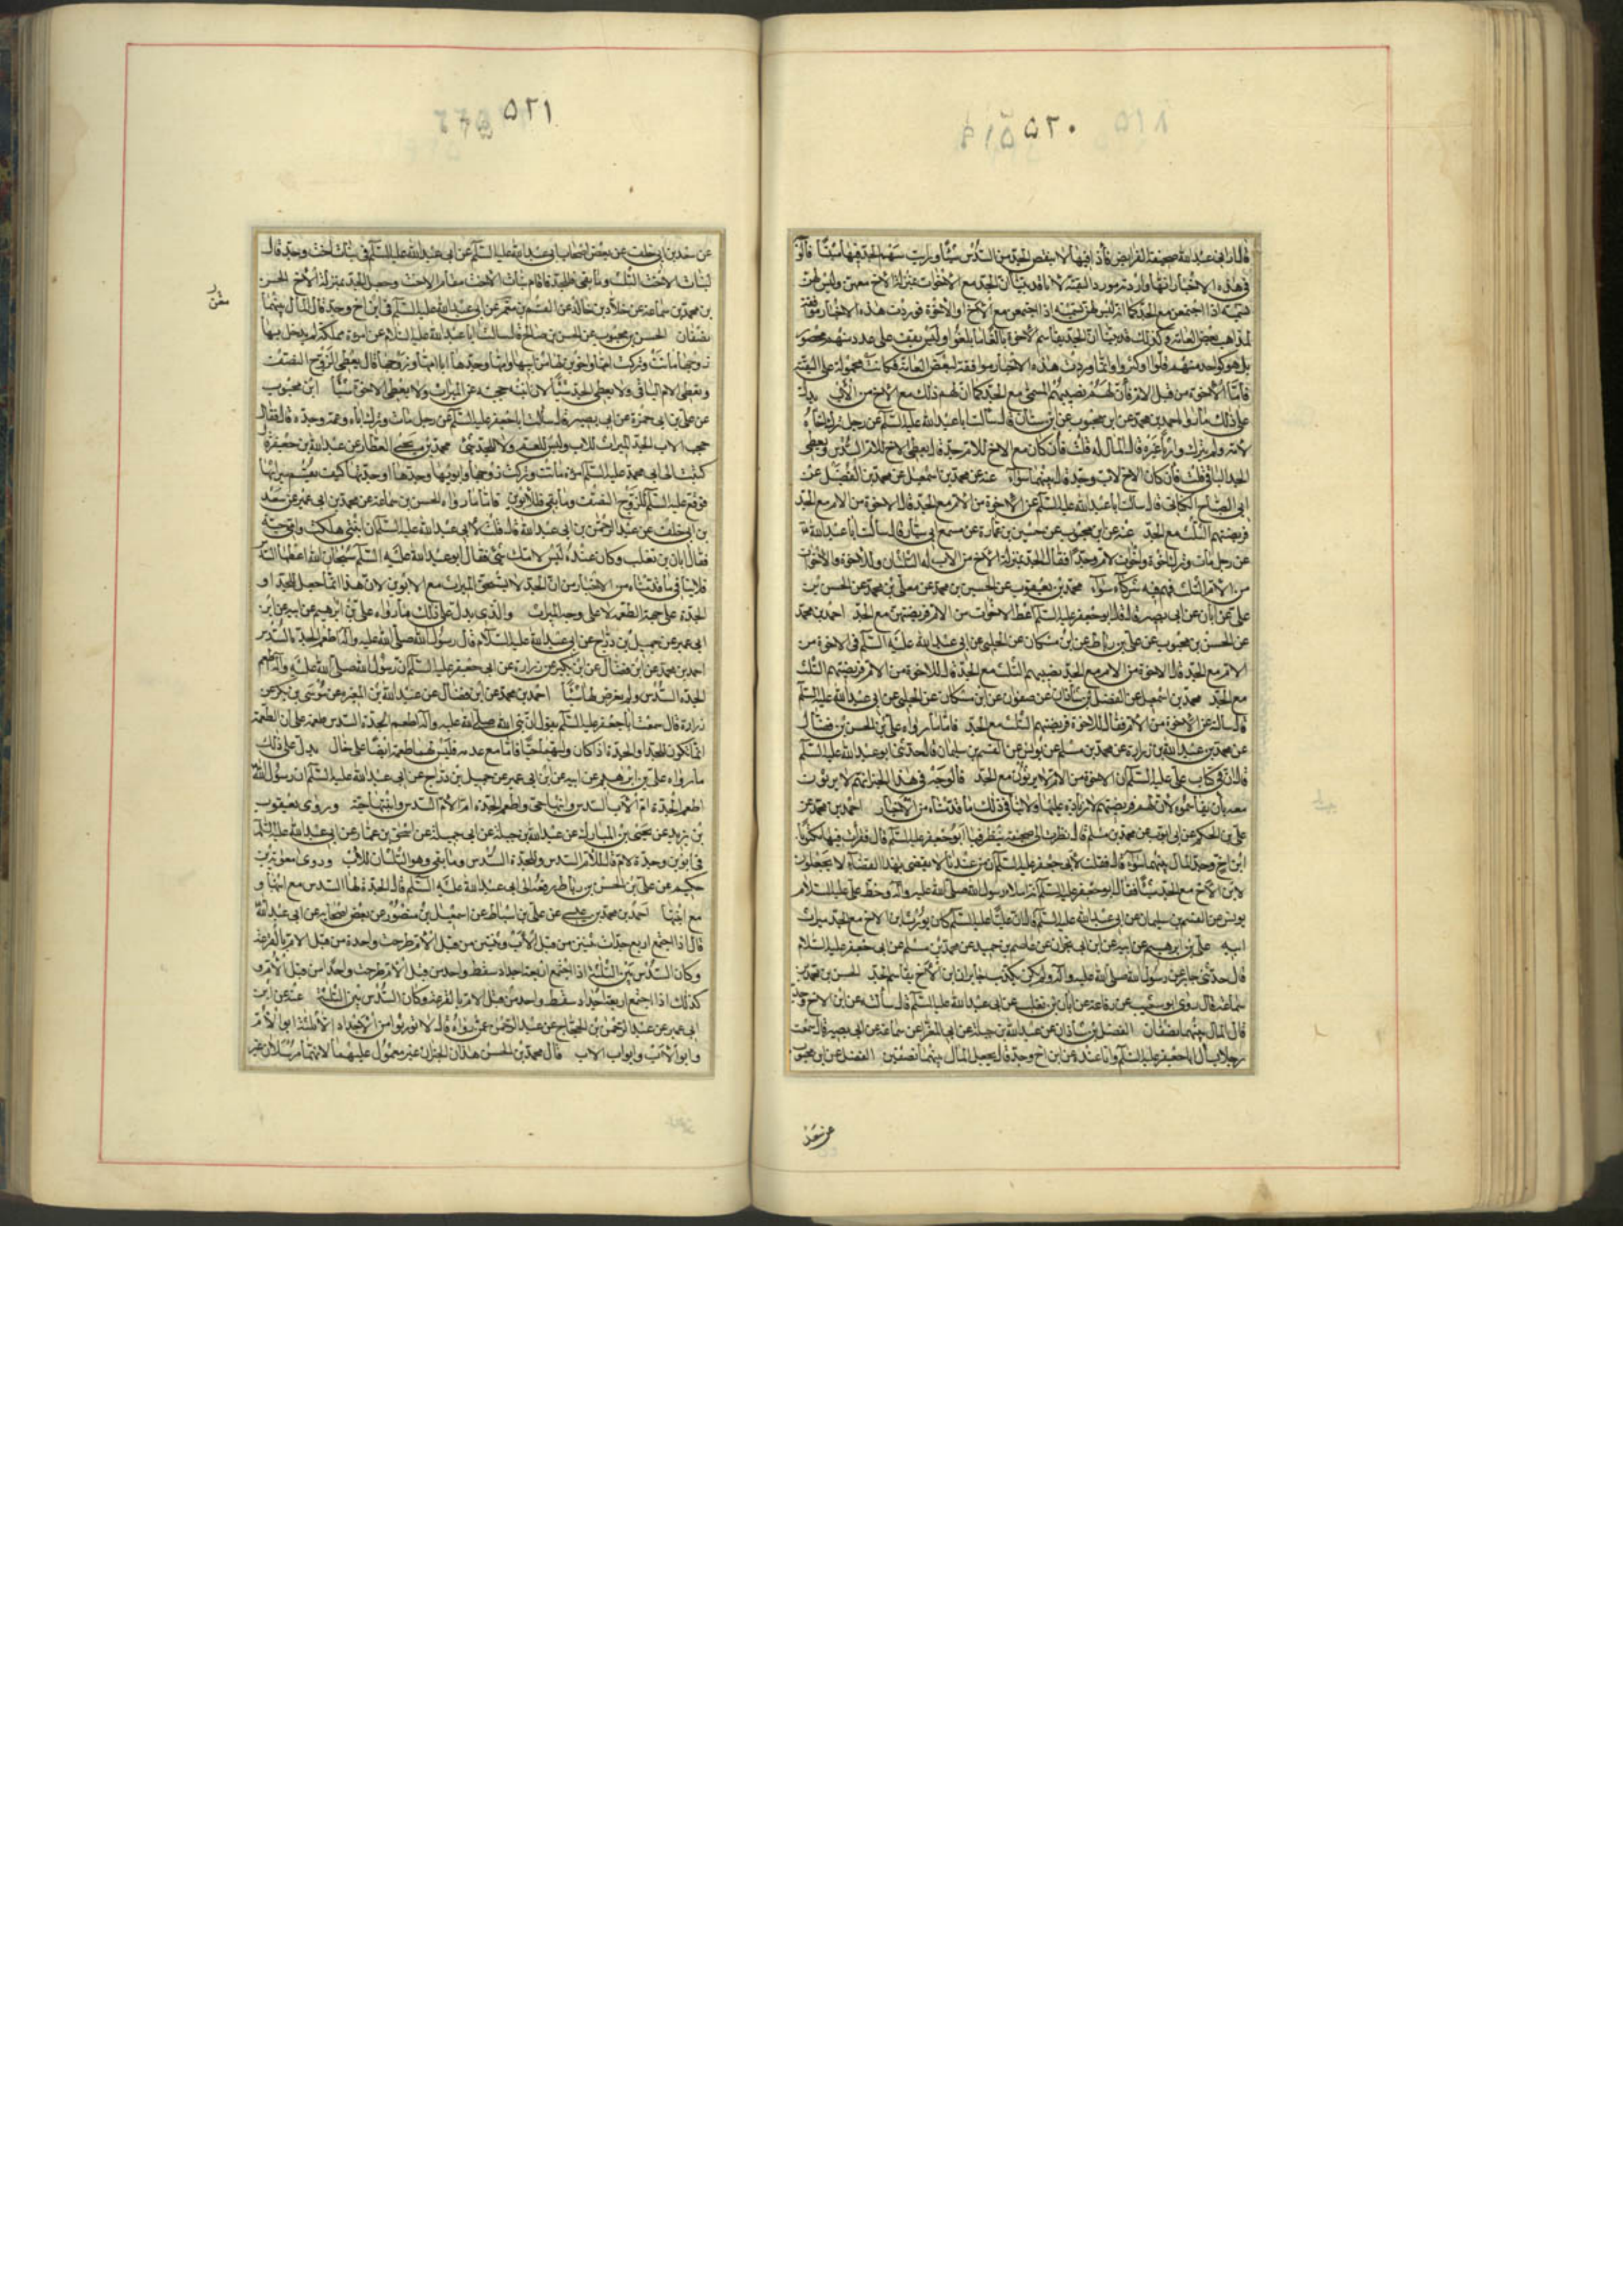 ٥٢٠
قال ارانى ابو عبد الله صحيفة الفرايض فاذا فيها لا ينقص الجد من السدس شيئا ورايت سهم الجد فيها مثبتا فالوجه
فى هذه الاخبار انها واردة مورد التقية لانا قد بينا ان الجد مع الاخوات بمنزلة الاخ معهن وليس لهن
تسمية اذا اجتمعن مع الجد كما انه ليس لهن تسمية اذا اجتمعن مع الاخ او الاخوة فوردت هذه الاخبار موافقة
لمذاهب بعض العامة وكذلك قد بينا ان الجد يقاسم الاخوة بالغا ما بلغوا وليس يقف على عدد منهم محصور
بل هو كواحد منهم قلوا او كثروا وانما وردت هذه الاخبار موافقة لبعض العامة فكانت محمولة على التقية
فاما الاخوة من قبل الام فان لهم نصيبهم المسمى مع الجد كما ان لهم ذلك مع الاخ من الاب يدل
على ذلك ما رواه احمد بن محمد عن ابن محبوب عن ابن سنان قال سالت ابا عبد الله عليه السلم عن رجل ترك اخاه
لامه ولم يترك وارثا غيره قال المال له قلت فان كان مع الاخ للام جد قال يعطى الاخ للام السدس ويعطى
الجد الباقى قلت فان كان الاخ لاب وجد قال بينهما سواء عنه عن محمد بن اسمعيل عن محمد بن الفضيل عن
ابى الصباح الكنانى قال سالت ابا عبد الله عليه السلم عن الاخوة من الام مع الجد قال الاخوة من الام مع الجد
فريضتهم الثلث مع الجد عنه عن ابن محبوب عن حسين بن عمارة عن مسمع ابى سيار قال سالت ابا عبد الله
عن رجل مات وترك اخوة واخوات لام وجدا فقال الجد بمنزلة الاخ من الاب له الثلثان وللاخوة والاخوات
من الام الثلث فهم فيه شركاء سواء محمد بن يعقوب عن الحسين بن محمد عن معلى بن محمد عن الحسن بن
على عن ابان عن ابى بصير قال قال ابو جعفر عليه السلم اعط الاخوات من الام فريضتهن مع الجد احمد بن محمد
عن الحسن بن محبوب عن على بن رباط عن ابن مسكان عن الحلبى عن ابى عبد الله عليه السلم فى الاخوة من
الام مع الجد قال الاخوة من الام مع الجد نصيبهم الثلث مع الجد قال للاخوة من الام فريضتهم الثلث
مع الجد محمد بن اسمعيل عن الفضل بن شاذان عن صفوان عن ابن مسكان عن الحلبى عن ابى عبد الله عليه السلم
قال سالته عن الاخوة من الام فقال للاخوة فريضتهم الثلث مع الجد فاما ما رواه على بن الحسن بن فضال
عن محمد بن عبد الله بن زرارة عن محمد بن مسلم عن يونس عن القسم بن سليمان قال حدثنى ابو عبد الله عليه السلم
قال ان فى كتاب على عليه السلم ان الاخوة من الام لا يرثون مع الجد فالوجه فى هذا الخبر انهم لا يرثون
معه بان يقاسموه لان لهم فريضتهم لا زيادة عليها ولا ينافى ذلك ما قدمناه من الاخبار احمد بن محمد عن
على بن الحكم عن ابى ايوب عن محمد بن مسلم قال نظرت الى صحيفة ينظر فيها ابو جعفر عليه السلم قال فقرات فيها مكتوبا
ابن اخ وجد المال بينهما سواء قال فقلت لابى جعفر عليه السلم ان من عندنا لا يقضى بهذا القضاء لا يجعلون
لابن الاخ مع الجد شيئا فقال ابو جعفر عليه السلم انه املاء رسول الله صلى الله عليه واله وخط على عليه السلام
يونس عن القسم بن سليمان عن ابى عبد الله عليه السلم قال ان عليا عليه السلم كان يورث ابن الاخ مع الجد ميراث
ابيه على بن ابرهيم عن ابيه عن ابن ابى نجران عن عاصم بن حميد عن محمد بن مسلم عن ابى جعفر عليه السلام
قال حدثنى جابر عن رسول الله صلى الله عليه واله ولم يكن يكذب جابر ان ابن الاخ يقاسم الجد الحسن بن محمد بن
سماعة قال روى ابو شعيب عن رفاعة عن ابان بن تغلب عن ابى عبد الله عليه السلم قال سالته عن ابن الاخ وجد
قال المال بينهما نصفان الفضل بن شاذان عن عبد الله بن جبلة عن ابى المغرا عن سماعة عن ابى بصير قال سمعت
رجلا يسال ابا جعفر عليه السلم وانا عنده عن ابن اخ وجد قال يجعل المال بينهما نصفين الفضل عن ابن محبوب
عن سعد
٥٢١
عن سعد بن ابى خلف عن بعض اصحاب ابى عبد الله عليه السلم عن ابى عبد الله عليه السلم فى بنات اخت وجد قال
لبنات الاخت الثلث وما بقى فللجد فاقام بنات الاخت مقام الاخت وجعل الجد بمنزلة الاخ الحسن
بن محمد بن سماعة عن خلاد بن خالد عن القسم بن معمر عن ابى عبد الله عليه السلم فى ابن اخ وجد قال المال بينهما
نصفان الحسن بن محبوب عن الحسن بن صالح قال سالت ابا عبد الله عليه السلام عن امراة مملكة لم يدخل بها
زوجها ماتت وتركت امها واخوين لها من ابيها وامها وجدها ابا امها وزوجها قال يعطى الزوج النصف
ويعطى الام الباقى ولا يعطى الجد شيئا لان ابنته حجبته عن الميراث ولا يعطى الاخوة شيئا ابن محبوب
عن على بن ابى حمزة عن ابى بصير قال سالت ابا جعفر عليه السلم عن رجل مات وترك اباه وعمه وجده قال فقال
حجب الاب الجد الميراث للاب وليس للعم ولا للجد شئ محمد بن يحيى العطار عن عبد الله بن جعفر قال
كتبت الى ابى محمد عليه السلم امراة ماتت وتركت زوجها وابويها وجدها او جدتها كيف يقسم ميراثها
فوقع عليه السلم للزوج النصف وما بقى فللابوين فاما ما رواه الحسن بن سماعة عن محمد بن ابى عمير عن سعد
بن ابى خلف عن عبد الرحمن بن ابى عبد الله قال قلت لابى عبد الله عليه السلم ان ابنتى هلكت وامى حية
فقال ابان بن تغلب وكان عنده ليس لامك شئ فقال ابو عبد الله عليه السلم سبحان الله اعطها السدس
فلا ينافى ما قدمناه من الاخبار من ان الجد لا يستحق الميراث مع الابوين لان هذا انما جعل للجد او
الجدة على جهة الطعمة لا على وجه الميراث والذى يدل على ذلك ما رواه على بن ابرهيم عن ابيه عن ابن
ابى عمير عن جميل بن دراج عن ابى عبد الله عليه السلام قال رسول الله صلى الله عليه واله اطعم الجدة السدس
احمد بن محمد عن ابن فضال عن ابن بكير عن زرارة عن ابى جعفر عليه السلم ان رسول الله صلى الله عليه واله اطعم
الجدة السدس ولم يفرض لها شيئا احمد بن محمد عن ابن فضال عن عبد الله بن المغيرة عن موسى بن بكر عن
زرارة قال سمعت ابا جعفر عليه السلم يقول ان نبى الله صلى الله عليه واله اطعم الجدة السدس طعمة على ان الطعمة
انما تكون للجد او الجدة اذا كان ولدهما حيا فاما مع عدمه فليس لهما طعمة ايضا على حال يدل على ذلك
ما رواه على بن ابرهيم عن ابيه عن ابن ابى عمير عن جميل بن دراج عن ابى عبد الله عليه السلم ان رسول الله
اطعم الجدة ام الاب السدس وابنها حى واطعم الجدة ام الام السدس وابنتها حية وروى يعقوب
بن يزيد عن يحيى بن المبارك عن عبد الله بن جبلة عن ابى جميلة عن اسحق بن عمار عن ابى عبد الله عليه السلم
فى ابوين وجدة لام قال للام السدس وللجدة السدس وما بقى وهو الثلثان للاب وروى معوية بن
حكيم عن على بن الحسن بن رباط رفعه الى ابى عبد الله عليه السلم قال الجدة لها السدس مع ابنها و
مع ابنتها احمد بن محمد بن عيسى عن على بن اسباط عن اسمعيل بن منصور عن بعض اصحابه عن ابى عبد الله
قال اذا اجتمع اربع جدات ثنتين من قبل الاب وثنتين من قبل الام طرحت واحدة من قبل الام بالقرعة
وكان السدس بين الثلثة وكذلك اذا اجتمع اربعة اجداد سقط واحد من قبل الام طرحت واحدا من قبل الام و
كذلك اذا اجتمع اربعة اجداد سقط واحد من قبل الام بالقرعة وكان السدس بين الثلثة عنه عن ابن
ابى عمير عن عبد الرحمن بن الحجاج عن عبد الرحمن عمن رواه قال لا تورثوا من الاجداد الا ثلثة ابو الام
وابو الاب وابو اب الاب قال محمد بن الحسن هذان الخبران غير معمول عليهما لانهما مرسلان غير